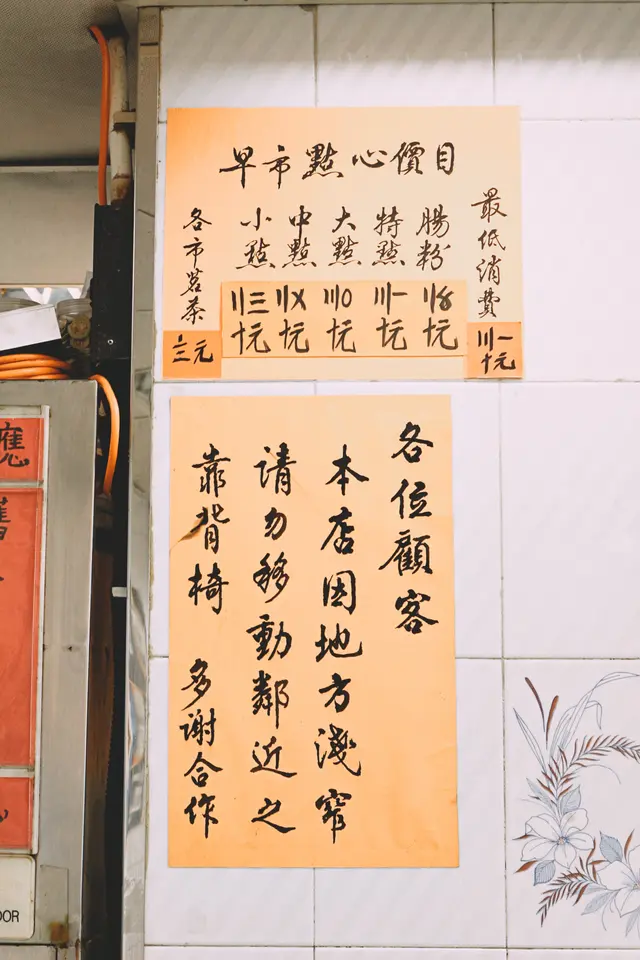 早市點心價目
最低消費
〣一
十元
腸粉
十元
特點
〣一
十元
大點
〣〇
十元
中點
〢〤
十元
小點
〢三
十元
各市茗茶
元
各位顧客
本店因地方淺窄
請勿移動鄰近之
靠背椅 多謝合作
應
OOR